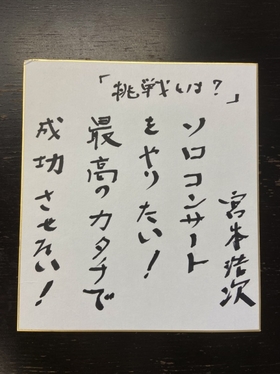 「挑戦とは？」
宮本浩次
ソロコンサート
をやりたい！
最高のカタチで
成功させたい！